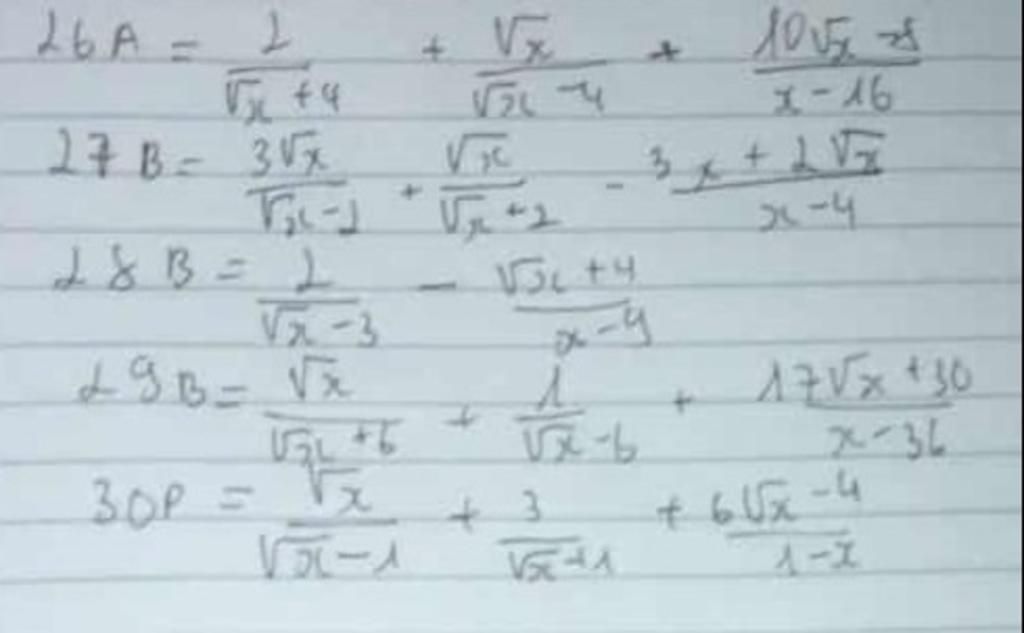 26 A = 2/(√x + 4) + √x/(√x - 4) + (10√x - 8)/(x - 16)
27 B = 3√x/(√x - 2) + √x/(√x + 2) - (3x + 2√x)/(x - 4)
28 B = 2/(√x - 3) - (√x + 4)/(x - 9)
29 B = √x/(√x + 6) + 1/(√x - 6) + (17√x + 30)/(x - 36)
30 P = √x/(√x - 1) + 3/(√x + 1) + (6√x - 4)/(1 - x)